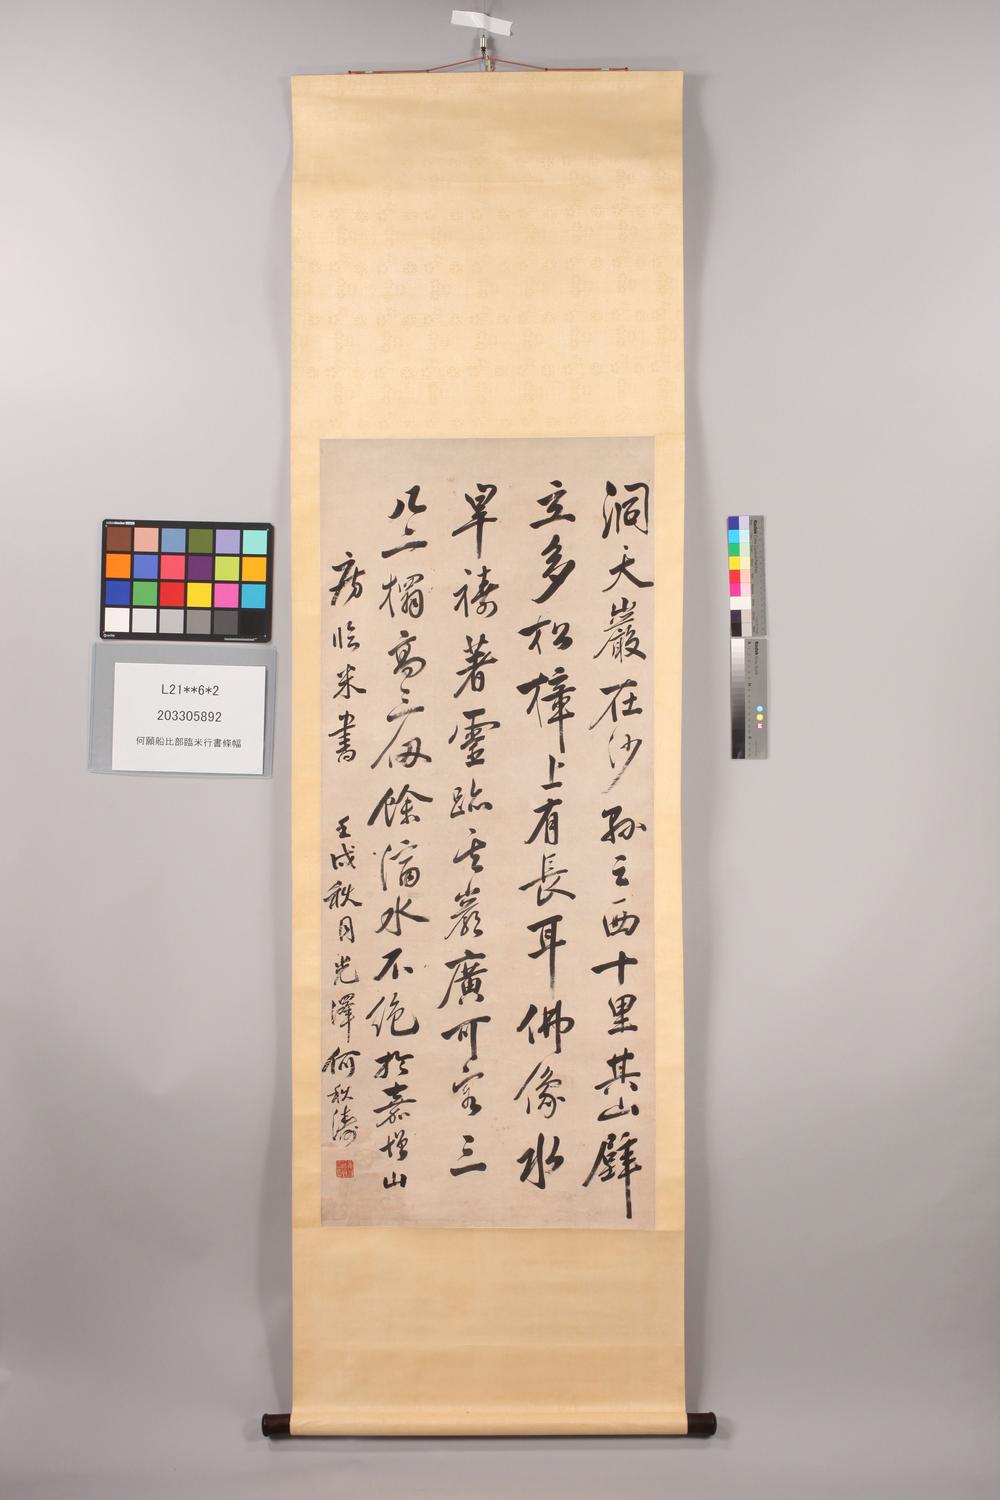 洞天巖在沙孫之西十里其山壁
立多松樟上有長耳佛像水
旱禱著靈跡其巖廣可容三
几二榻高三仞餘滴水不絕於嘉增山
房臨米書 壬戌秋月光澤何秋濤
L21**6*2
203305892
何願船比部臨米行書條幅